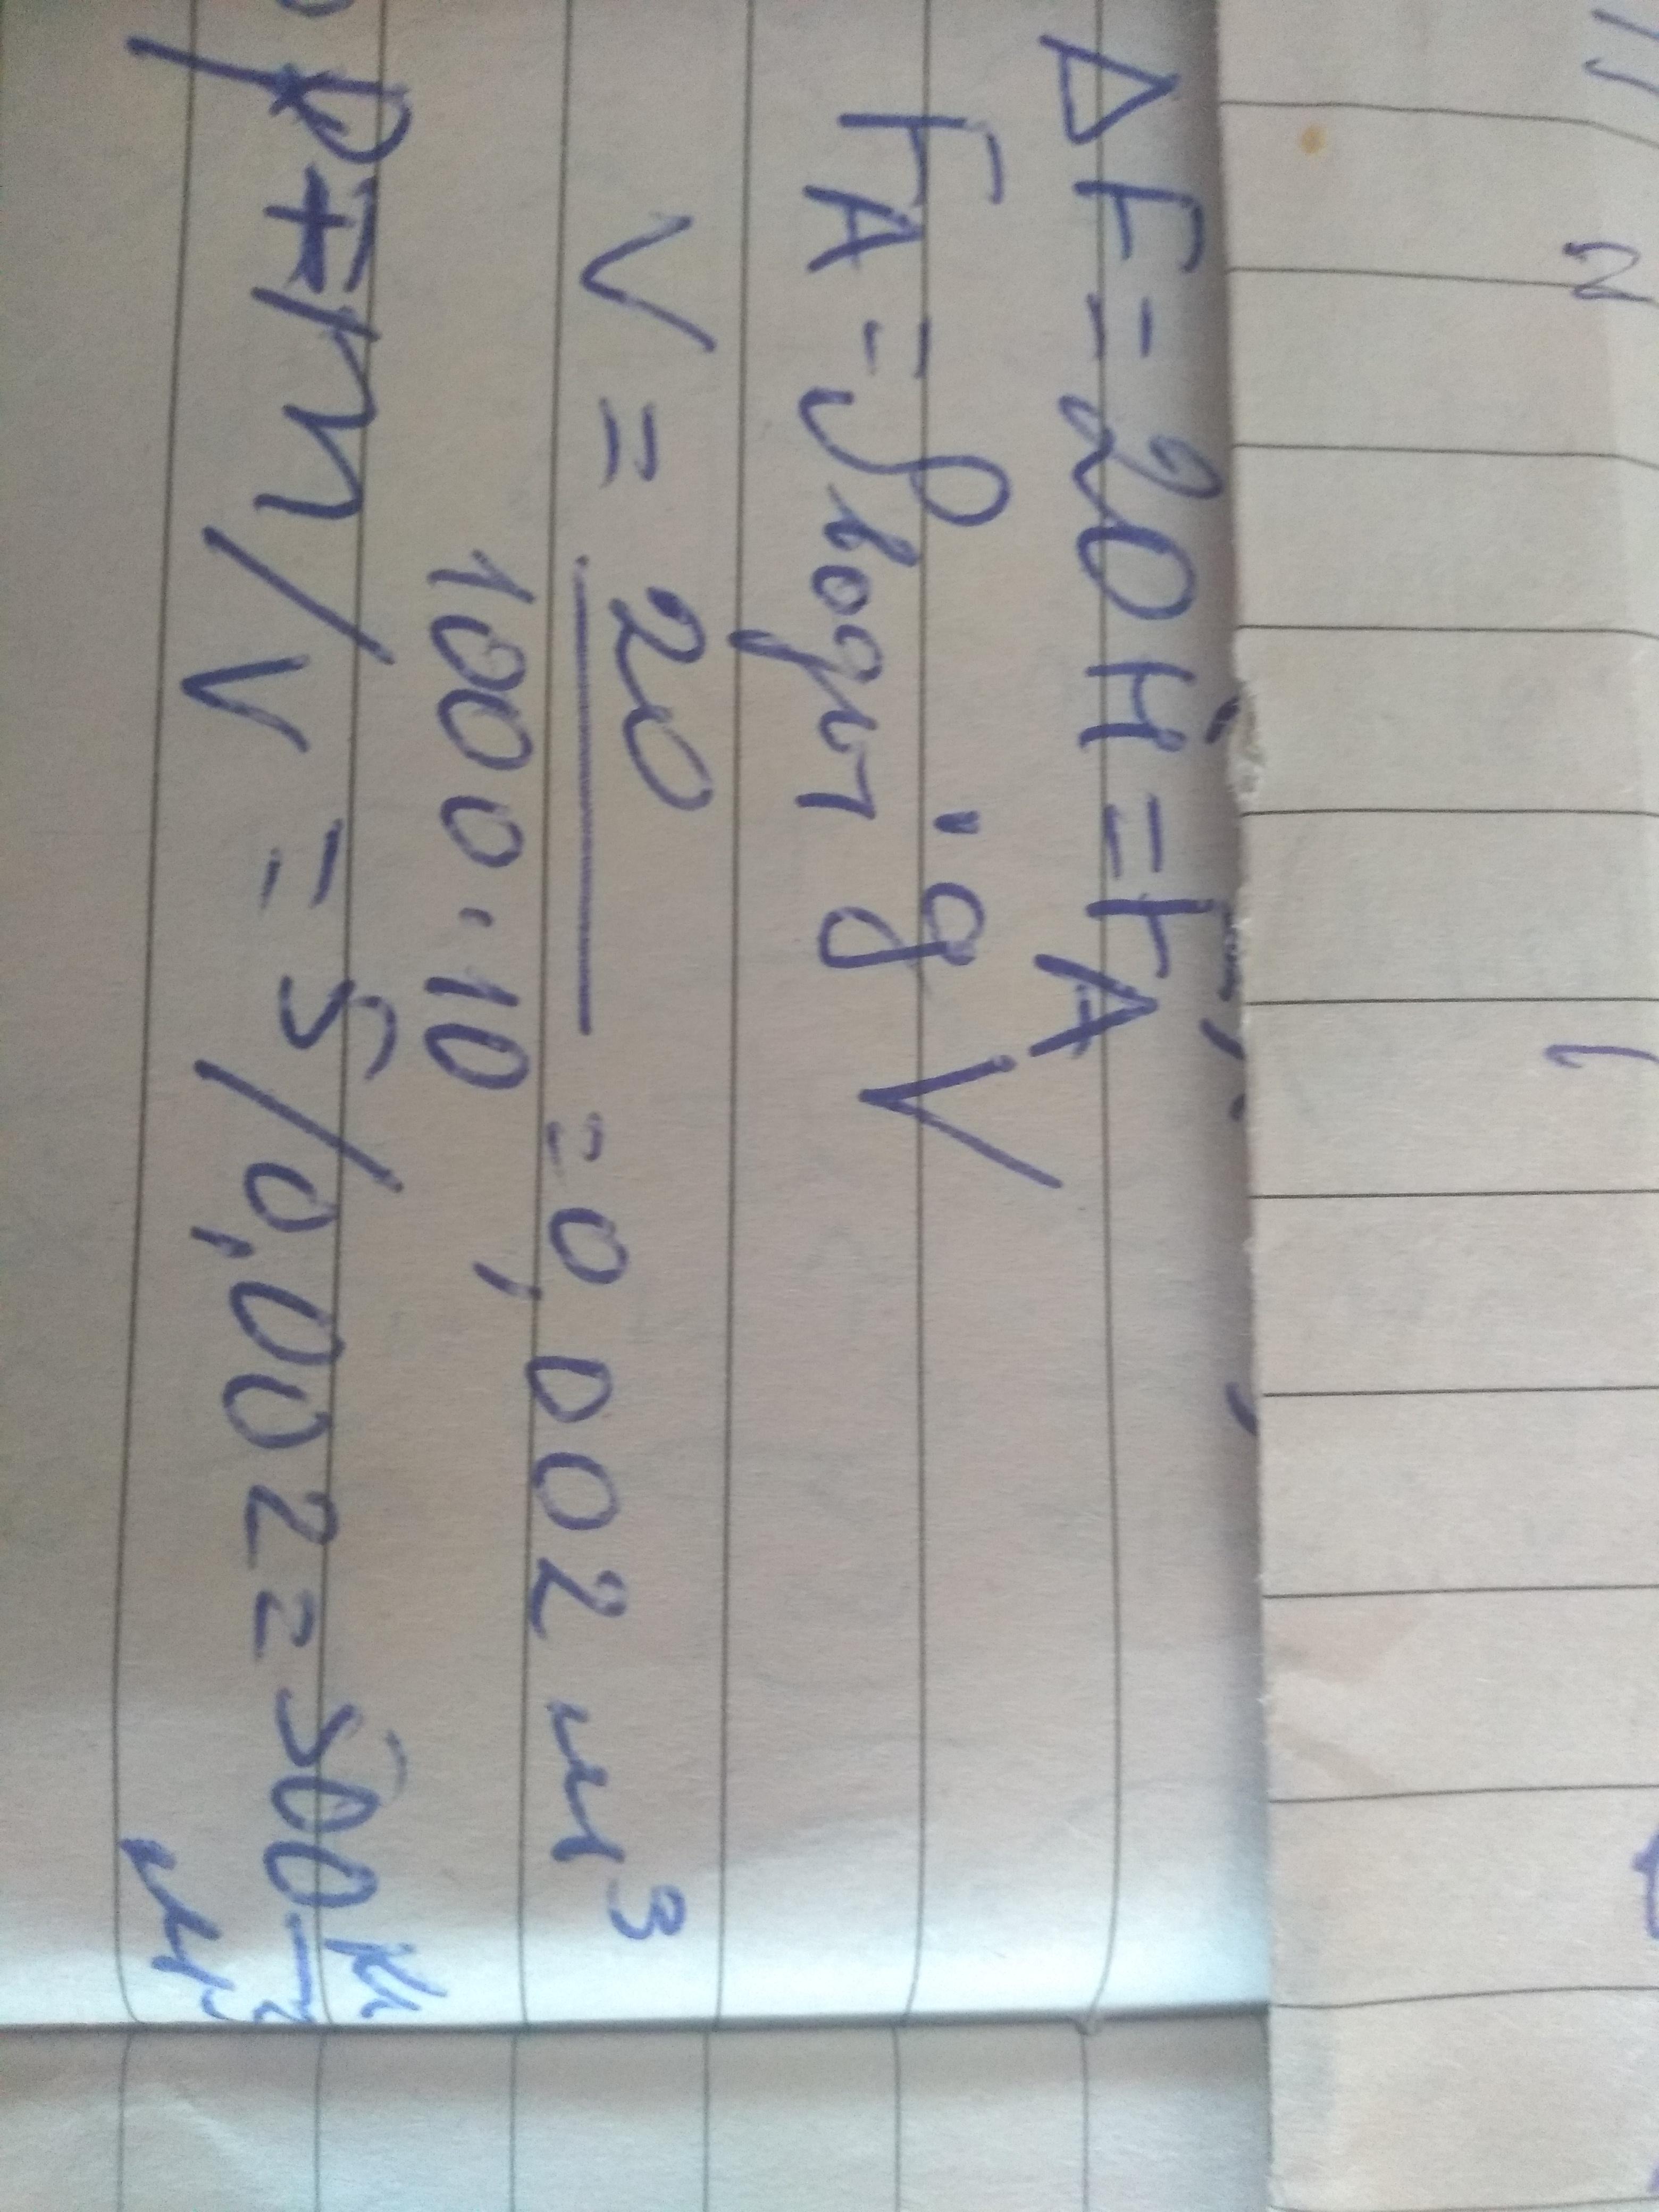 ΔF = 20 Н = FA
FA = ρводы · g V
V = 20
1000 · 10
= 0,002 м³
ρ = m/V = 5/0,002 = 500 кг
м³